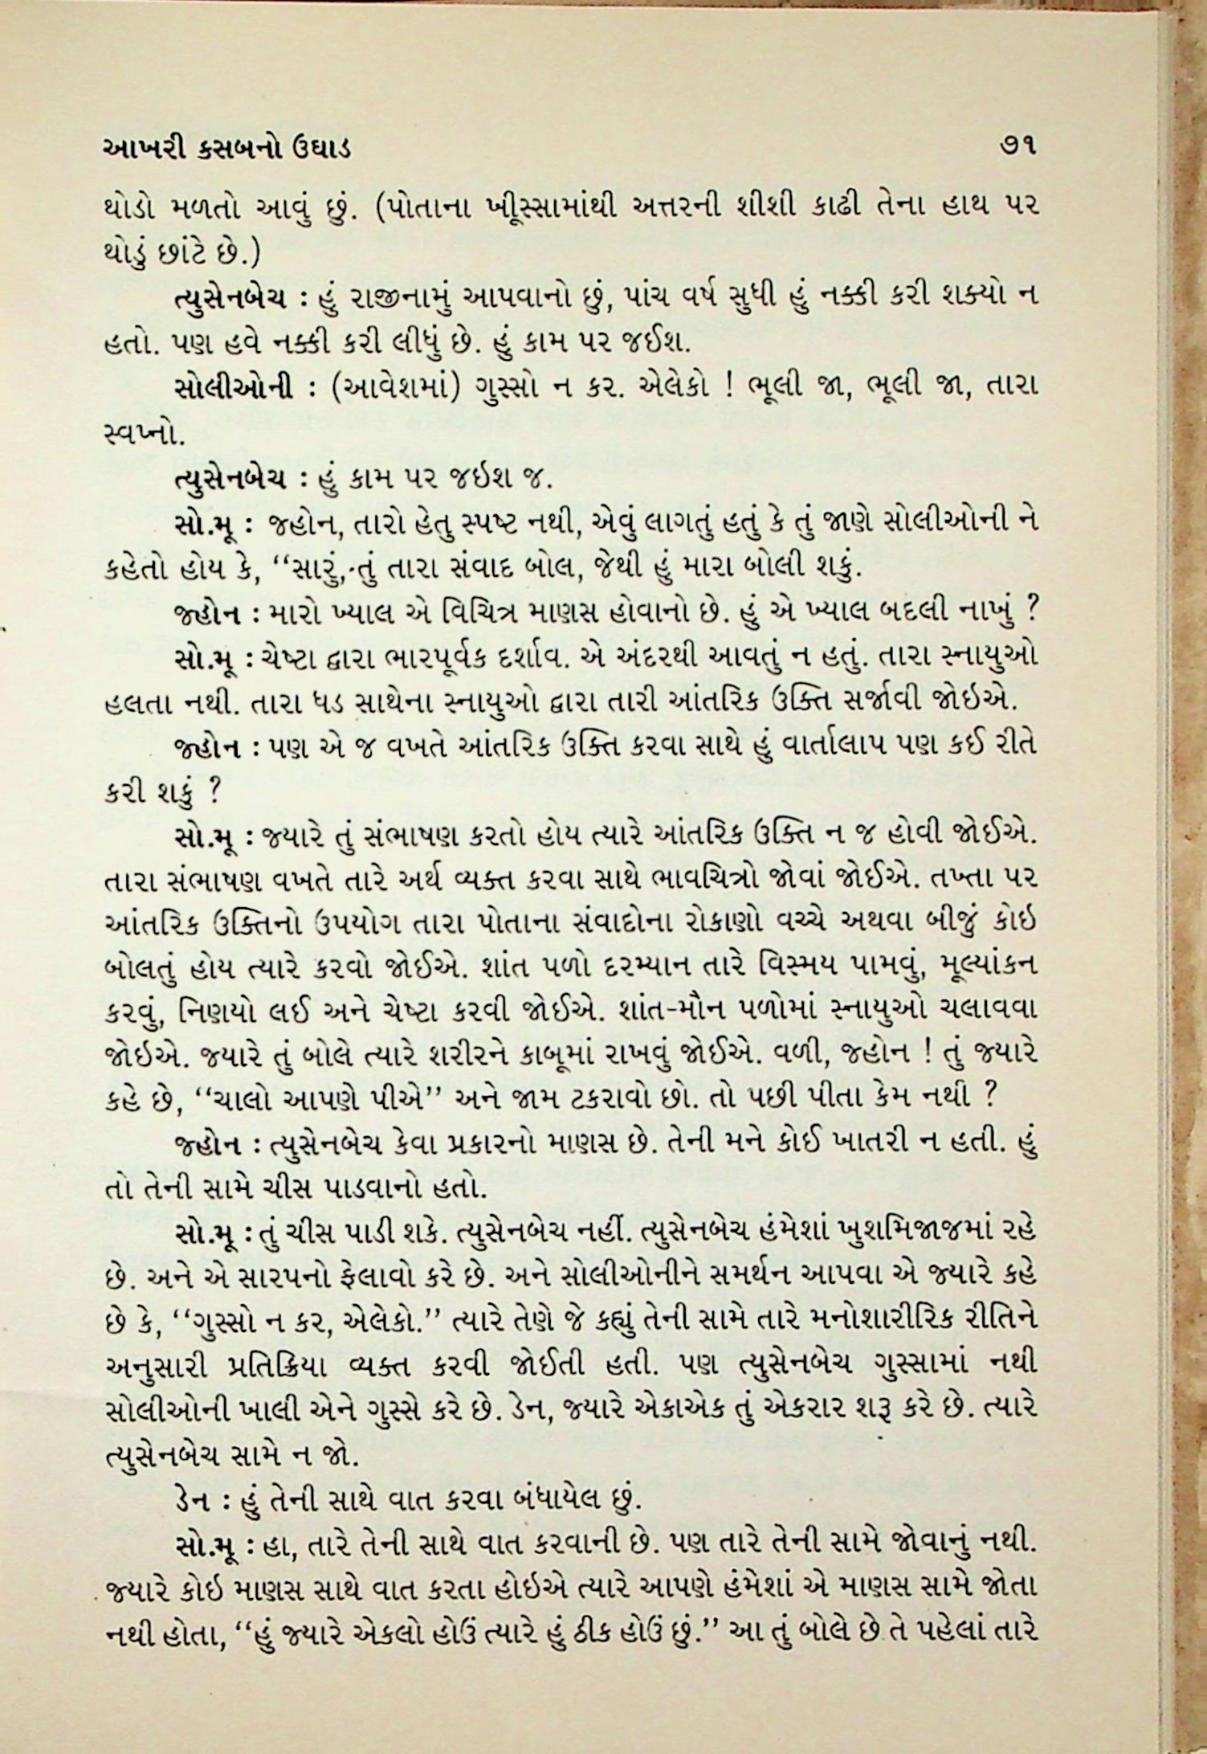 આખરી કસબનો ઉઘાડ ૭૧
થોડો મળતો આવું છું. (પોતાના ખીૂસ્સામાંથી અત્તરની શીશી કાઢી તેના હાથ પર
થોડું છાંટે છે.)
ત્યુસેનબેચ : હું રાજીનામું આપવાનો છું, પાંચ વર્ષ સુધી હું નક્કી કરી શક્યો ન
હતો. પણ હવે નક્કી કરી લીધું છે. હું કામ પર જઈશ.
સોલીઓની : (આવેશમાં) ગુસ્સો ન કર. એલેકો ! ભૂલી જા, ભૂલી જા, તારા
સ્વપ્નો.
ત્યુસેનબેચ : હું કામ પર જઇશ જ.
સો.મૂ : જહોન, તારો હેતુ સ્પષ્ટ નથી, એવું લાગતું હતું કે તું જાણે સોલીઓની ને
કહેતો હોય કે, ‘‘સારું, તું તારા સંવાદ બોલ, જેથી હું મારા બોલી શકું.
જ્હોન : મારો ખ્યાલ એ વિચિત્ર માણસ હોવાનો છે. હું એ ખ્યાલ બદલી નાખું ?
સો.મૂ : ચેષ્ટા દ્વારા ભારપૂર્વક દર્શાવ. એ અંદરથી આવતું ન હતું. તારા સ્નાયુઓ
હલતા નથી. તારા ધડ સાથેના સ્નાયુઓ દ્વારા તારી આંતરિક ઉક્તિ સર્જાવી જોઇએ.
જ્હોન : પણ એ જ વખતે આંતરિક ઉક્તિ કરવા સાથે હું વાર્તાલાપ પણ કઈ રીતે
કરી શકું ?
સો.મૂ : જ્યારે તું સંભાષણ કરતો હોય ત્યારે આંતરિક ઉક્તિ ન જ હોવી જોઈએ.
તારા સંભાષણ વખતે તારે અર્થ વ્યક્ત કરવા સાથે ભાવચિત્રો જોવાં જોઈએ. તખ્તા પર
આંતરિક ઉક્તિનો ઉપયોગ તારા પોતાના સંવાદોના રોકાણો વચ્ચે અથવા બીજું કોઇ
બોલતું હોય ત્યારે કરવો જોઈએ. શાંત પળો દરમ્યાન તારે વિસ્મય પામવું, મૂલ્યાંકન
કરવું, નિણયો લઈ અને ચેષ્ટા કરવી જોઈએ. શાંત-મૌન પળોમાં સ્નાયુઓ ચલાવવા
જોઇએ. જ્યારે તું બોલે ત્યારે શરીરને કાબૂમાં રાખવું જોઈએ. વળી, જહોન ! તું જ્યારે
કહે છે, ‘‘ચાલો આપણે પીએ’’ અને જામ ટકરાવો છો. તો પછી પીતા કેમ નથી ?
જ્હોન : ત્યુસેનબેચ કેવા પ્રકારનો માણસ છે. તેની મને કોઈ ખાતરી ન હતી. હું
તો તેની સામે ચીસ પાડવાનો હતો.
સો.મૂ : તું ચીસ પાડી શકે. ત્યુસેનબેચ નહીં. ત્યુસેનબેચ હંમેશાં ખુશમિજાજમાં રહે
છે. અને એ સારપનો ફેલાવો કરે છે. અને સોલીઓનીને સમર્થન આપવા એ જ્યારે કહે
છે કે, ‘‘ગુસ્સો ન કર, એલેકો.’’ ત્યારે તેણે જે કહ્યું તેની સામે તારે મનોશારીરિક રીતિને
અનુસારી પ્રતિક્રિયા વ્યક્ત કરવી જોઈતી હતી. પણ ત્યુસેનબેચ ગુસ્સામાં નથી
સોલીઓની ખાલી એને ગુસ્સે કરે છે. ડેન, જ્યારે એકાએક તું એકરાર શરૂ કરે છે. ત્યારે
ત્યુસેનબેચ સામે ન જો.
ડેન : હું તેની સાથે વાત કરવા બંધાયેલ છું.
સો.મૂ : હા, તારે તેની સાથે વાત કરવાની છે. પણ તારે તેની સામે જોવાનું નથી.
જ્યારે કોઇ માણસ સાથે વાત કરતા હોઇએ ત્યારે આપણે હંમેશાં એ માણસ સામે જોતા
નથી હોતા, ‘‘હું જ્યારે એકલો હોઉં ત્યારે હું ઠીક હોઉં છું.’’ આ તું બોલે છે તે પહેલાં તારે